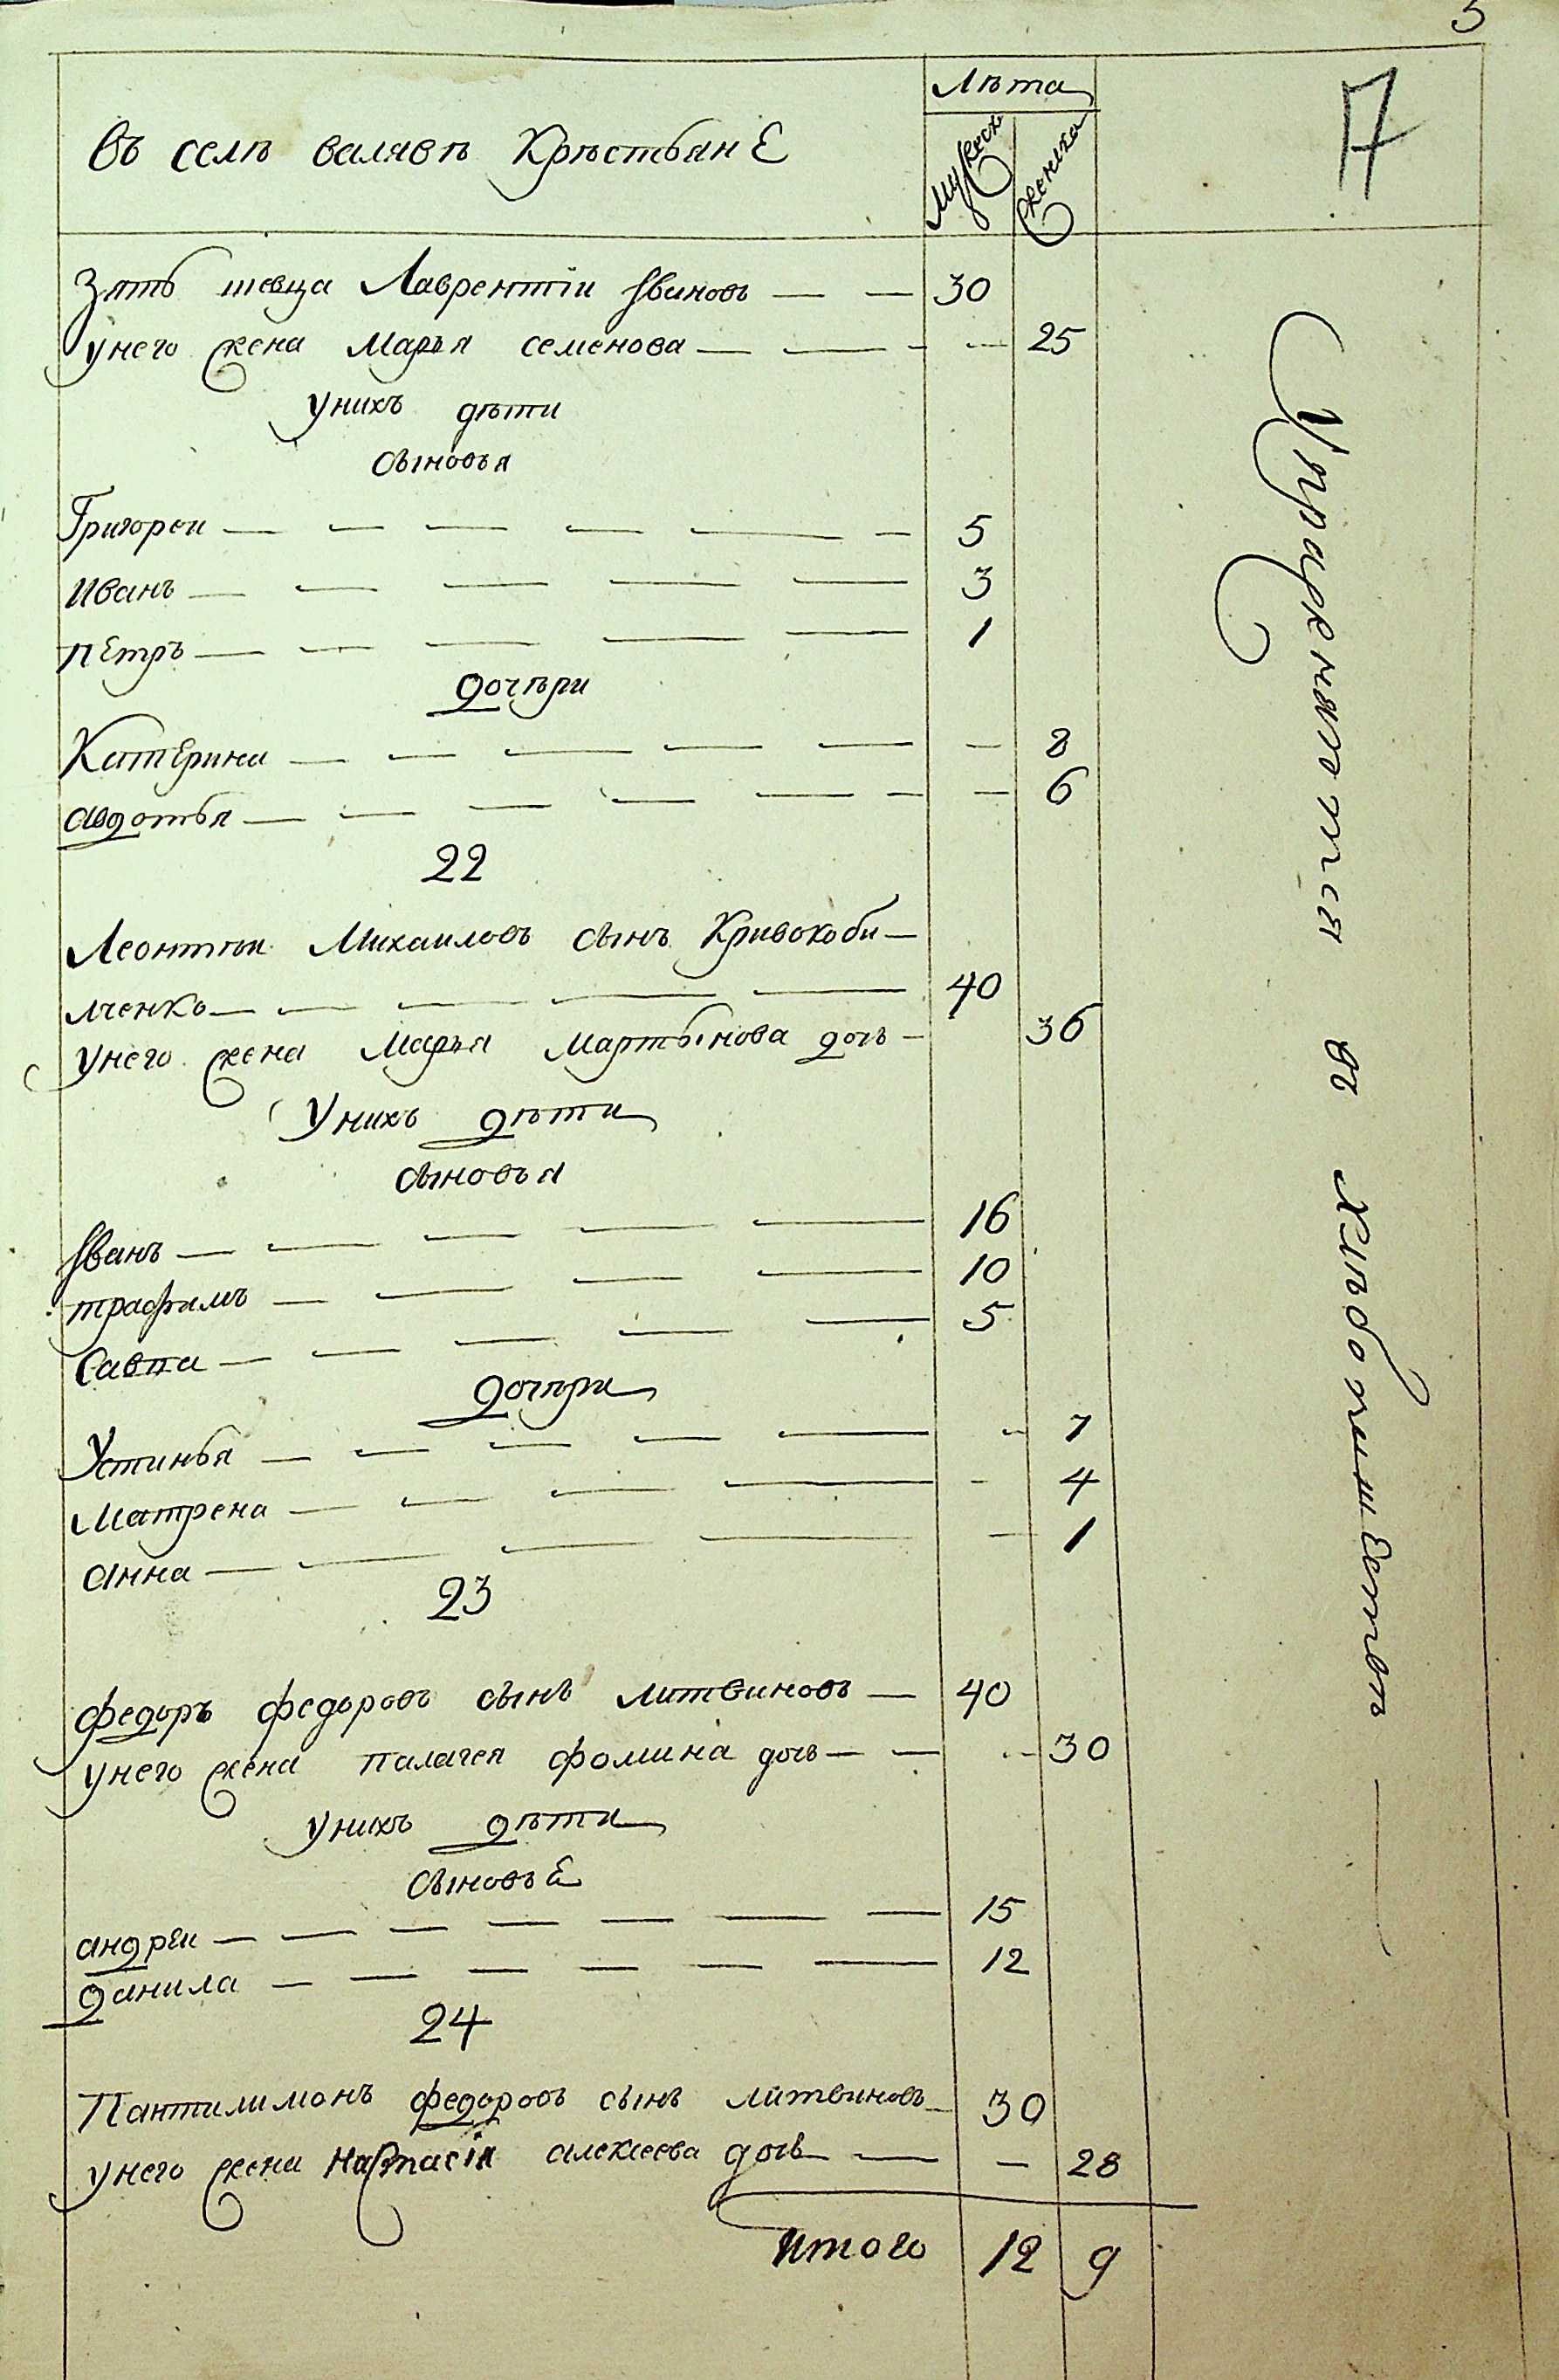 Лѣта
въ селѣ валявѣ Крѣстьянѣ
Мужеск
женска
Зять шевца Лаврентіи Ивановъ 30
унего жена Марья семенова 25
унихъ дѣти
сыновья
Григореи 5
Иванъ 3
пЕтръ 1
дочѣри
КатЕрина 8
авдотья 6
22
Леонтѣи Михаиловъ сынъ Кривокоби-
лченко 40
унего жена Марья Мартынова дочь 36
Унихъ дѣти
сыновья
Иванъ 16
трафимъ 10
Савпа 5
дочѣри
Устинья 7
Матрена 4
анна 1
23
федоръ федоровъ сынъ литвиновъ 40
унего жена палагея фомина дочь 30
унихъ дѣти
сыновьЕ
андрЕи 15
данила 12
24
Пантилимонъ федоровъ сынъ литвиновъ 30
унего жена Настасія алексеева дочь 28
итого 12 9
Упражняются въ хлѣбопашЕствѣ